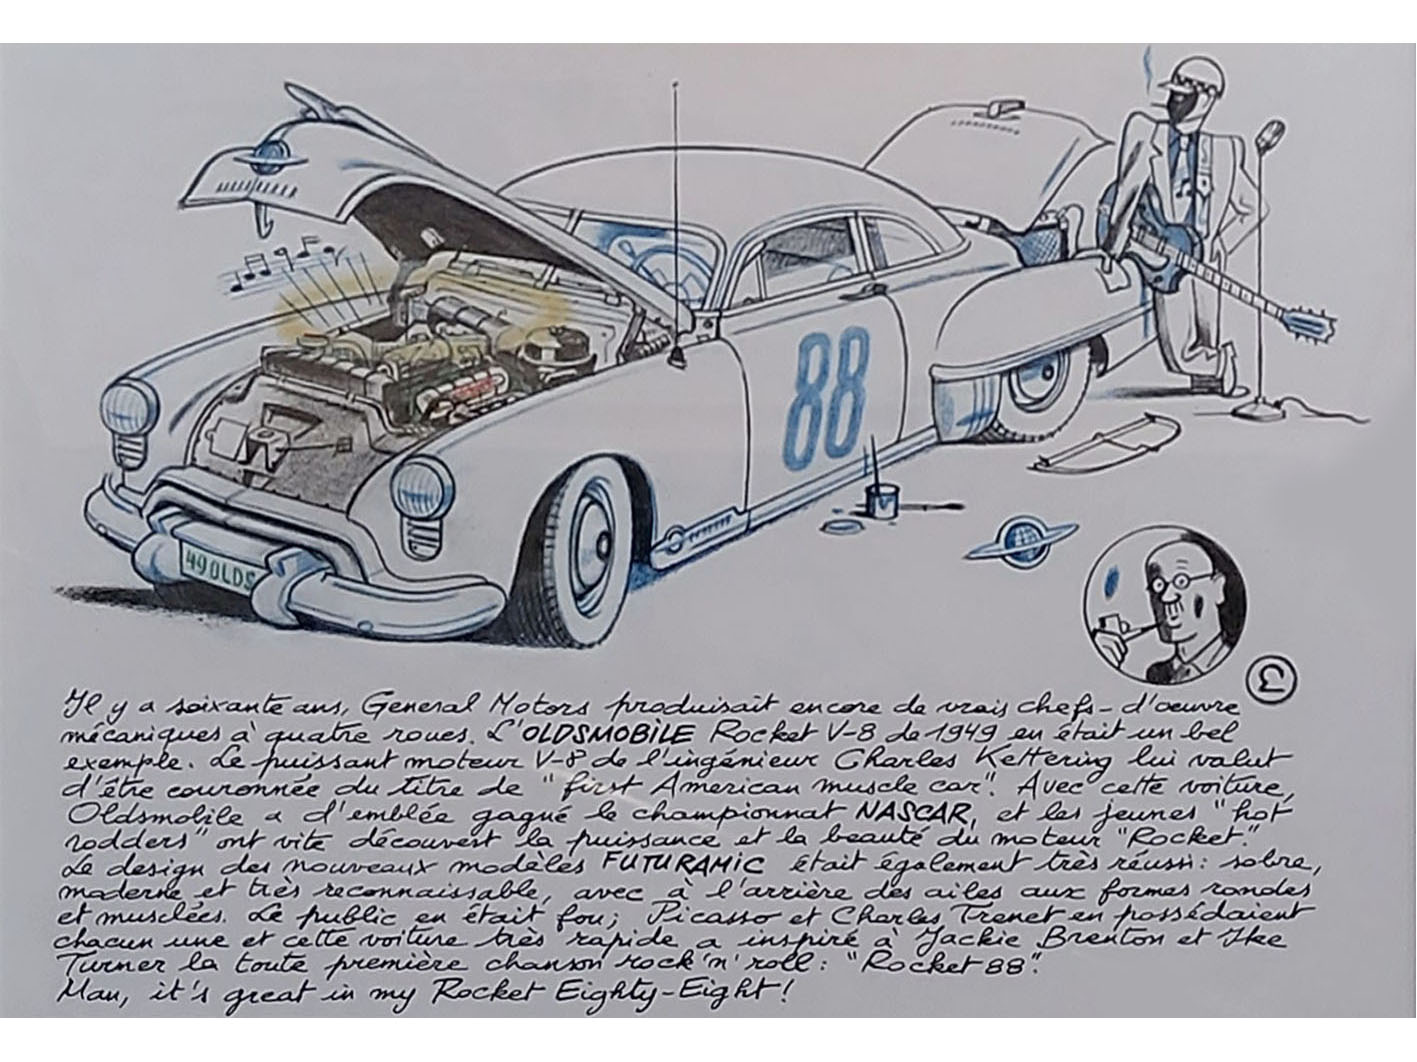 88
49 OLDS
Il y a soixante ans, General Motors produisait encore de vrais chefs-d'œuvre
mécaniques à quatre roues. L'OLDSMOBILE Rocket V-8 de 1949 en était un bel
exemple. Le puissant moteur V-8 de l'ingénieur Charles Kettering lui valut
d'être couronnée du titre de "first American muscle car". Avec cette voiture,
Oldsmobile a d'emblée gagné le championnat NASCAR, et les jeunes "hot
rodders" ont vite découvert la puissance et la beauté du moteur "Rocket".
Le design des nouveaux modèles FUTURAMIC était également très réussi: sobre,
moderne et très reconnaissable, avec à l'arrière des ailes aux formes rondes
et musclées. Le public en était fou; Picasso et Charles Trenet en possédaient
chacun une et cette voiture très rapide a inspiré à Jackie Brenton et Ike
Turner la toute première chanson rock'n'roll: "Rocket 88".
Man, it's great in my Rocket Eighty-Eight!